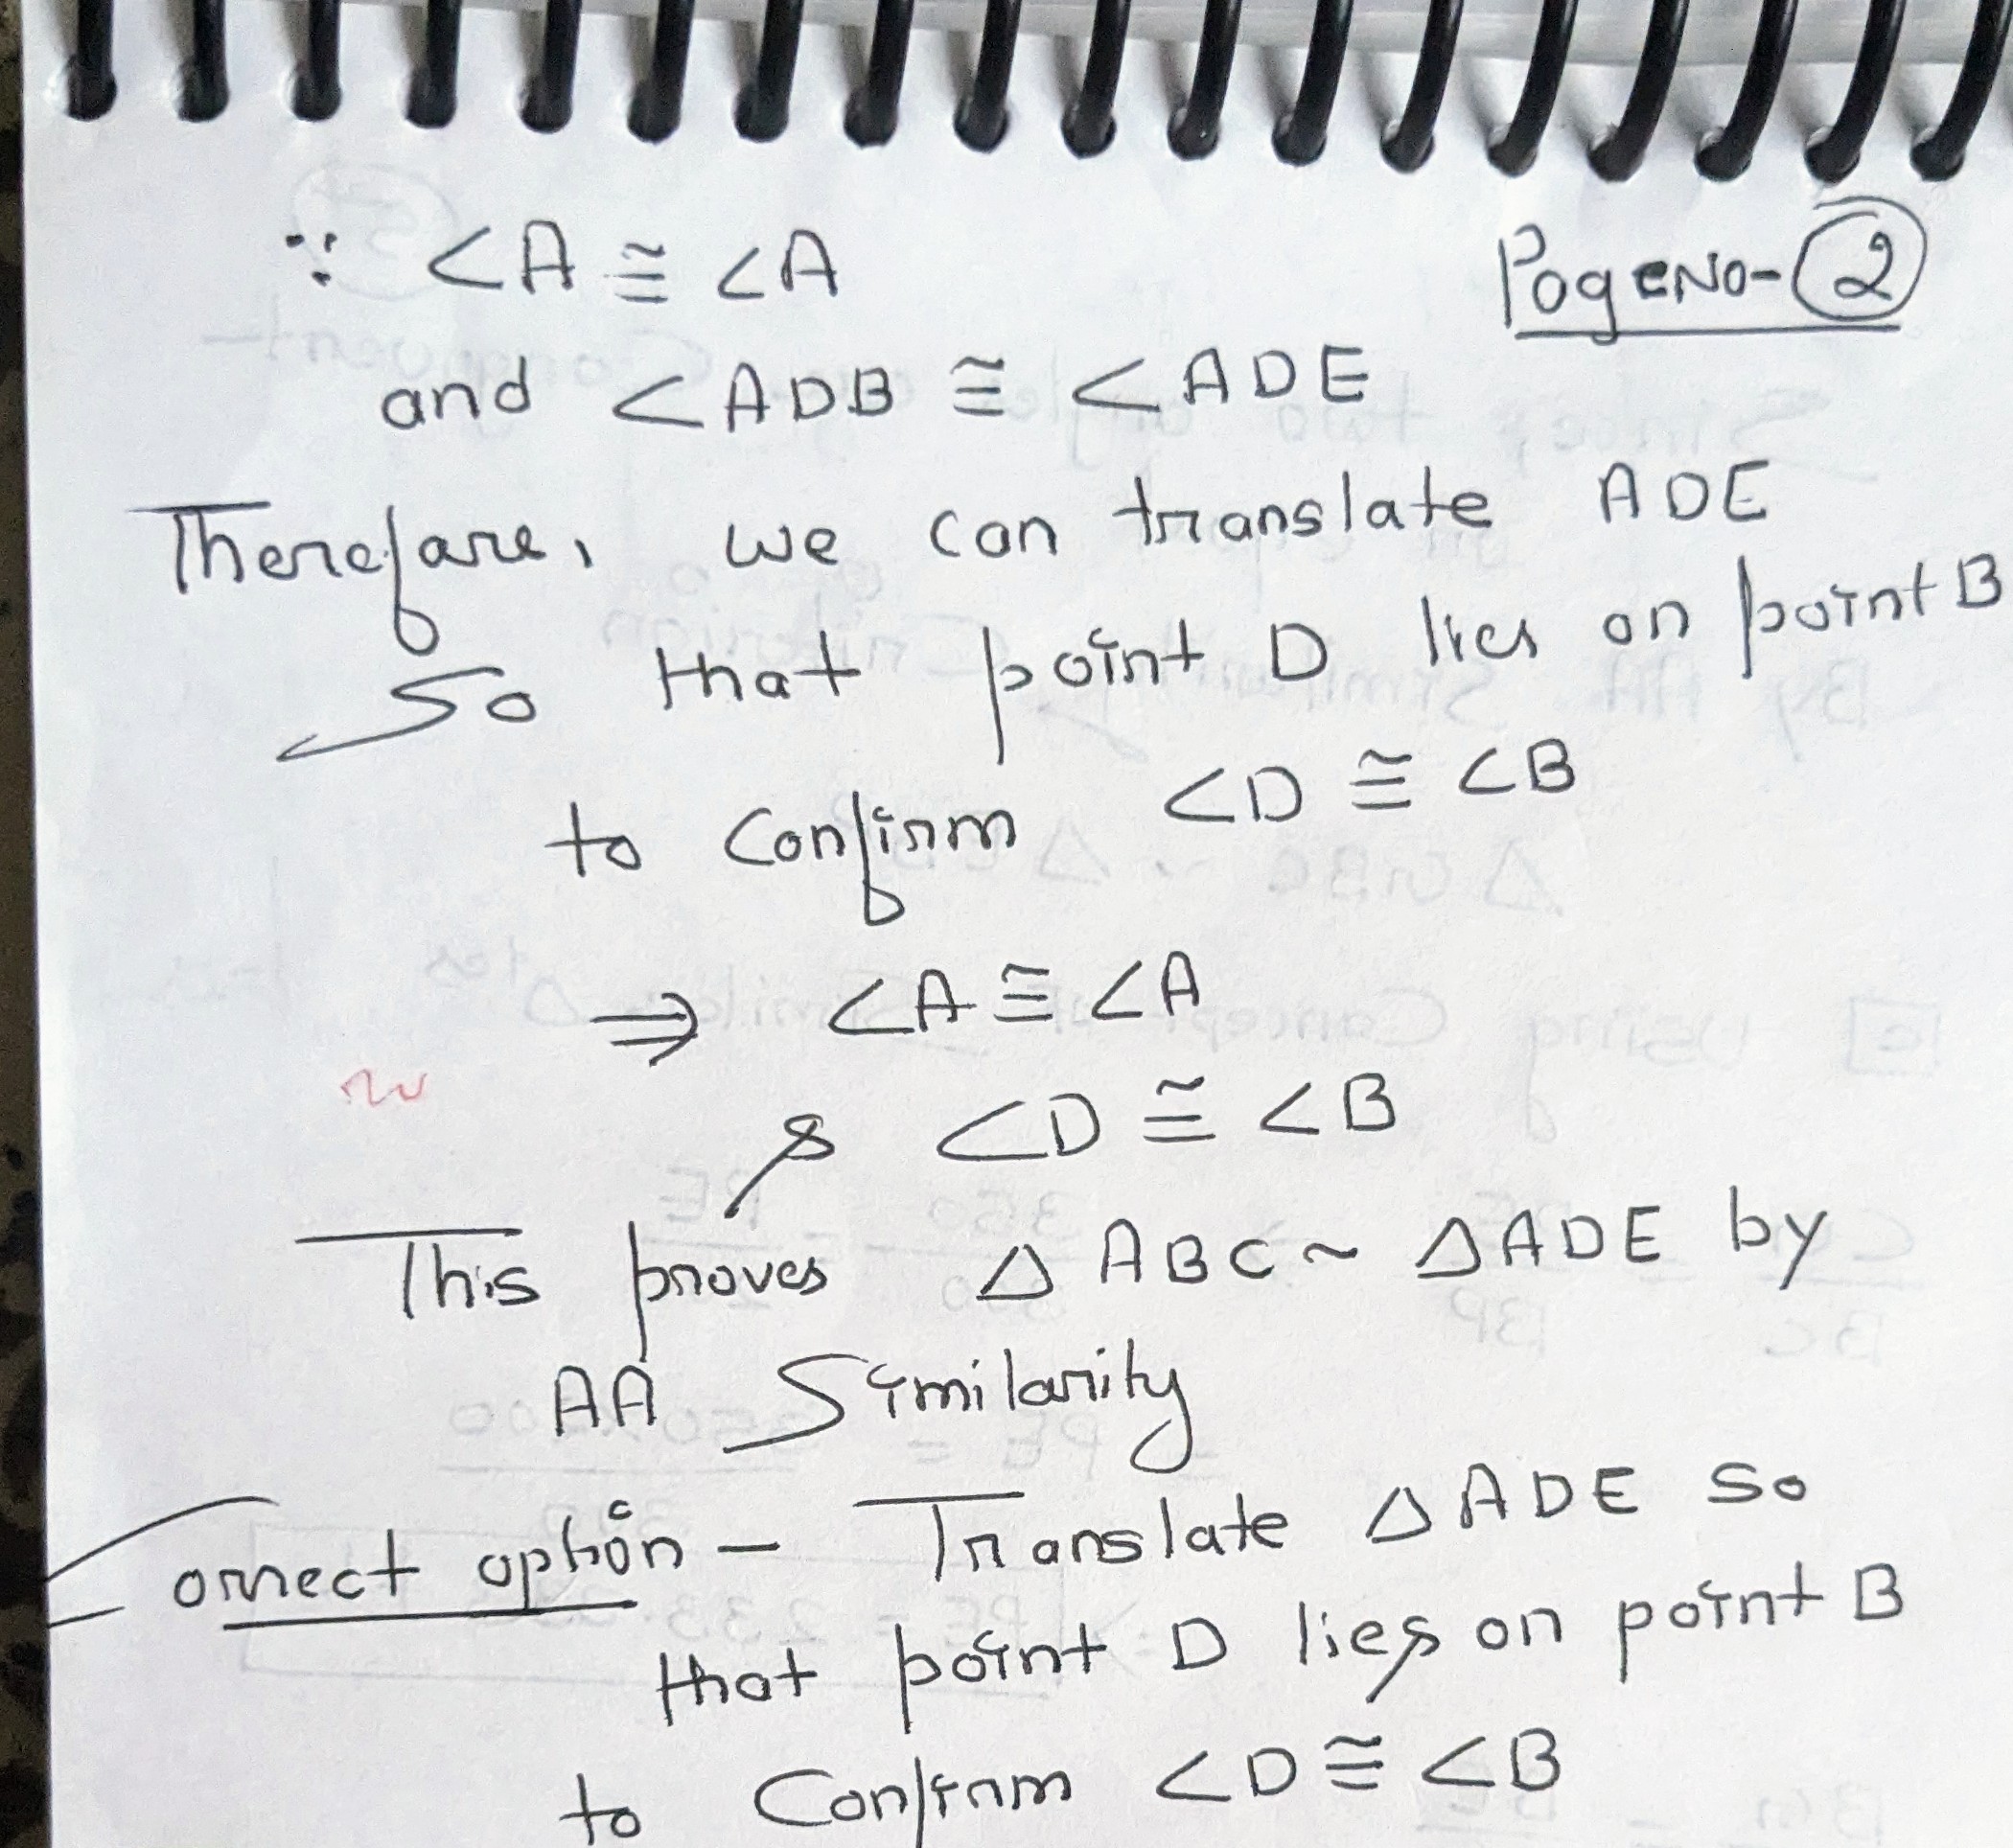 ∵ ∠A ≅ ∠A
PogeNo-②
and ∠ADB ≅ ∠ADE
Therefare, we can translate ADE
So that point D lies on point B
to Confirm ∠D ≅ ∠B
⇒ ∠A ≅ ∠A
& ∠D ≅ ∠B
This proves △ ABC ~ △ADE by
AA Similarity
Correct option - Translate △ADE So
that point D lies on point B
to Confirm ∠D ≅ ∠B